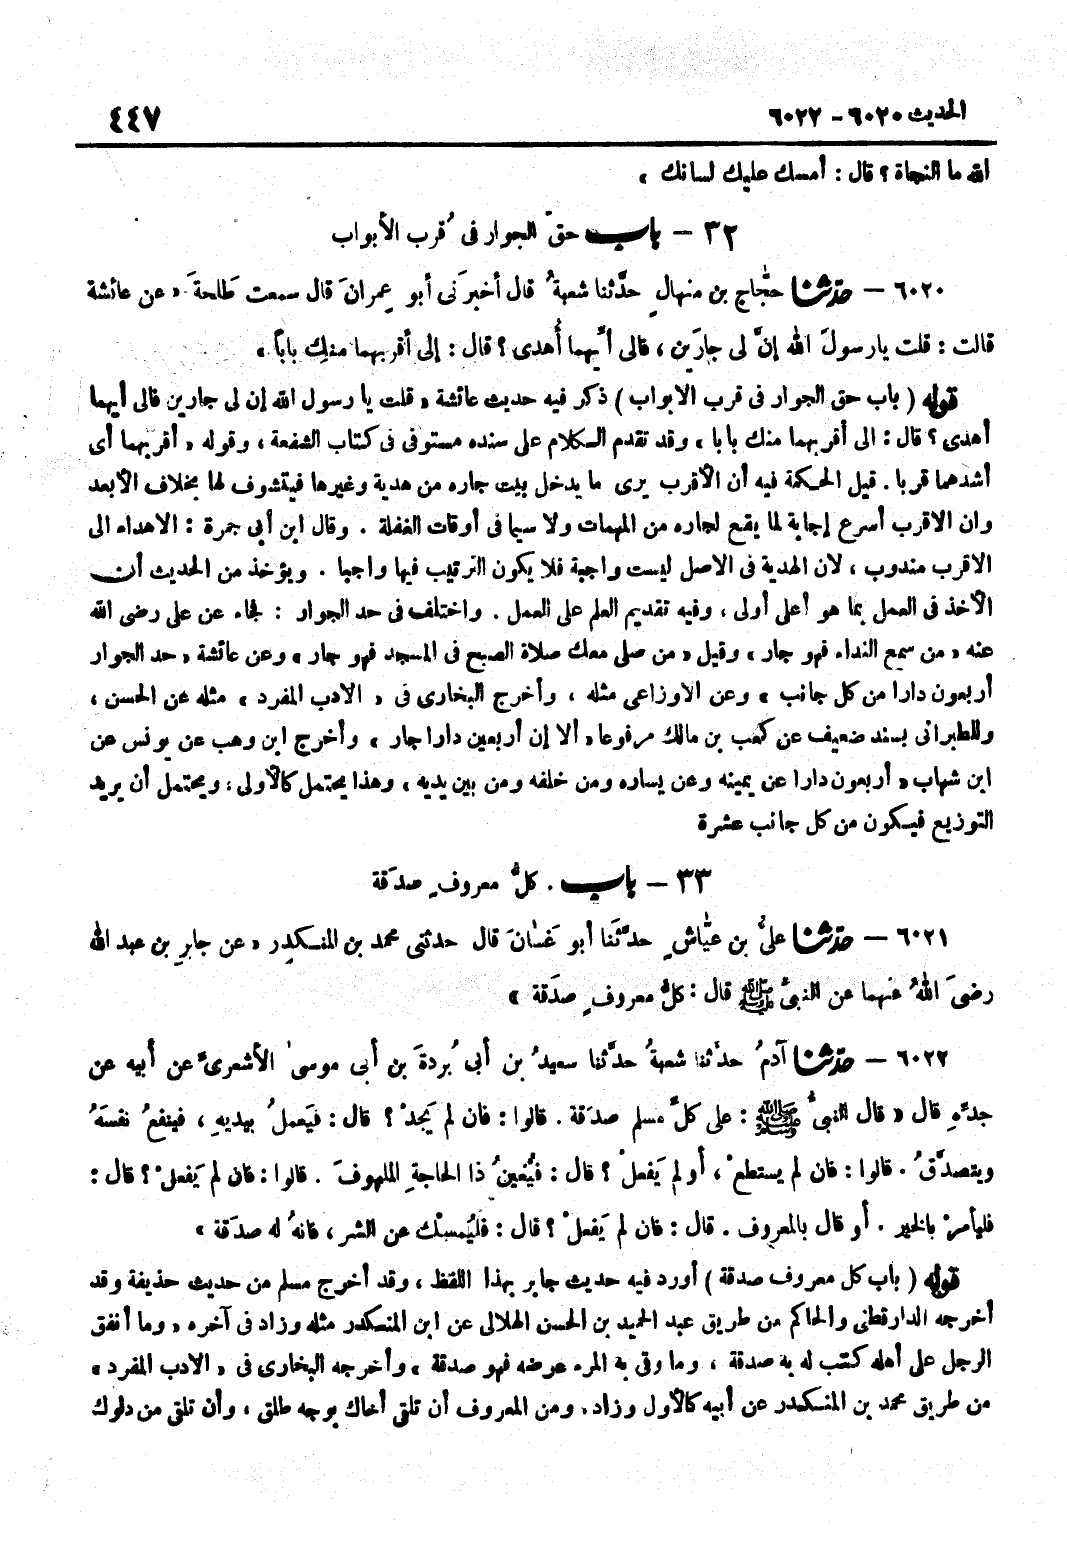 الحديث ٦٠٢٠ - ٦٠٢٢ ٤٤٧
الله ما النجاة ؟ قال : أمسك عليك لسانك »
٣٢ - باب حقّ الجوار فى قُرب الأبواب
٦٠٢٠ - حدثنا حجّاج بن منهالٍ حدَّثنا شعبةُ قال أخبرَنى أبو عِمرانَ قال سمعت طَلحةَ « عن عائشة
قالت : قلت يارسولَ الله إنَّ لى جارَين ، فالى أيِّهما أُهدى ؟ قال : إلى أقربهما منكِ باباً »
قوله ( باب حق الجوار فى قرب الابواب ) ذكر فيه حديث عائشة « قلت يا رسول الله إن لى جارين فالى أيهما
أهدى ؟ قال : الى أقربهما منك بابا » وقد تقدم الكلام على سنده مستوفى فى كتاب الشفعة ، وقوله « أقربهما أى
أشدهما قربا . قيل الحكمة فيه أن الأقرب يرى ما يدخل بيت جاره من هدية وغيرها فيتشوف لها بخلاف الأبعد
وان الاقرب أسرع إجابة لما يقع لجاره من المهمات ولا سيما فى أوقات الغفلة . وقال ابن أبى جمرة : الاهداء الى
الاقرب مندوب ، لان الهدية فى الاصل ليست واجبة فلا يكون الترتيب فيها واجبا . ويؤخذ من الحديث أن
الأخذ فى العمل بما هو أعلى أولى ، وفيه تقديم العلم على العمل . واختلف فى حد الجوار : فجاء عن على رضى الله
عنه « من سمع النداء فهو جار » وقيل « من صلى معك صلاة الصبح فى المسجد فهو جار » وعن عائشة « حد الجوار
أربعون دارا من كل جانب » وعن الاوزاعى مثله ، وأخرج البخارى فى « الادب المفرد » مثله عن الحسن ،
وللطبرانى بسند ضعيف عن كعب بن مالك مرفوعا « ألا إن أربعين دارا جار » وأخرج ابن وهب عن يونس عن
ابن شهاب « أربعون دارا عن يمينه وعن يساره ومن خلفه ومن بين يديه » وهذا يحتمل كالأولى ، ويحتمل أن يريد
التوزيع فيكون من كل جانب عشرة
٣٣ - باب . كلُّ معروفٍ صدَقة
٦٠٢١ - حدثنا علىُّ بن عيَّاشٍ حدَّثَنا أبو غَسّانَ قال حدثنى محمد بن المنكدِر « عن جابرِ بن عبد الله
رضىَ اللهُ عنهما عن النبىِّ ﷺ قال : كلُّ معروفٍ صدَقة »
٦٠٢٢ - حدثنا آدمُ حدَّثنا شعبةُ حدَّثنا سعيدُ بن أبى بُردةَ بن أبى موسىٰ الأشعرىِّ عن أبيه عن
جدِّهِ قال « قال النبىُّ ﷺ : على كلِّ مسلم صدَقة . قالوا : فان لم يَجدْ ؟ قال : فيَعملُ بيديهِ ، فينفعُ نفسَهُ
ويتصدَّقُ . قالوا : فان لم يستطعْ ، أو لم يَفعلْ ؟ قال : فيُعينُ ذا الحاجةِ الملهوفَ . قالوا : فان لم يَفعلْ ؟ قال :
فليأمرْ بالخير . أو قال بالمعروف . قال : فان لم يَفعلْ ؟ قال : فليُمسِكْ عن الشر ، فانهُ له صدَقة »
قوله ( باب كل معروف صدقة ) أورد فيه حديث جابر بهذا اللفظ ، وقد أخرج مسلم من حديث حذيفة وقد
أخرجه الدارقطنى والحاكم من طريق عبد الحميد بن الحسن الهلالى عن ابن المنكدر مثله وزاد فى آخره « وما أنفق
الرجل على أهله كتب له به صدقة ، وما وقى به المرء عرضه فهو صدقة » وأخرجه البخارى فى « الادب المفرد »
من طريق محمد بن المنكدر عن أبيه كالأول وزاد . ومن المعروف أن تلقى أخاك بوجه طلق ، وأن تلقى من دلوك